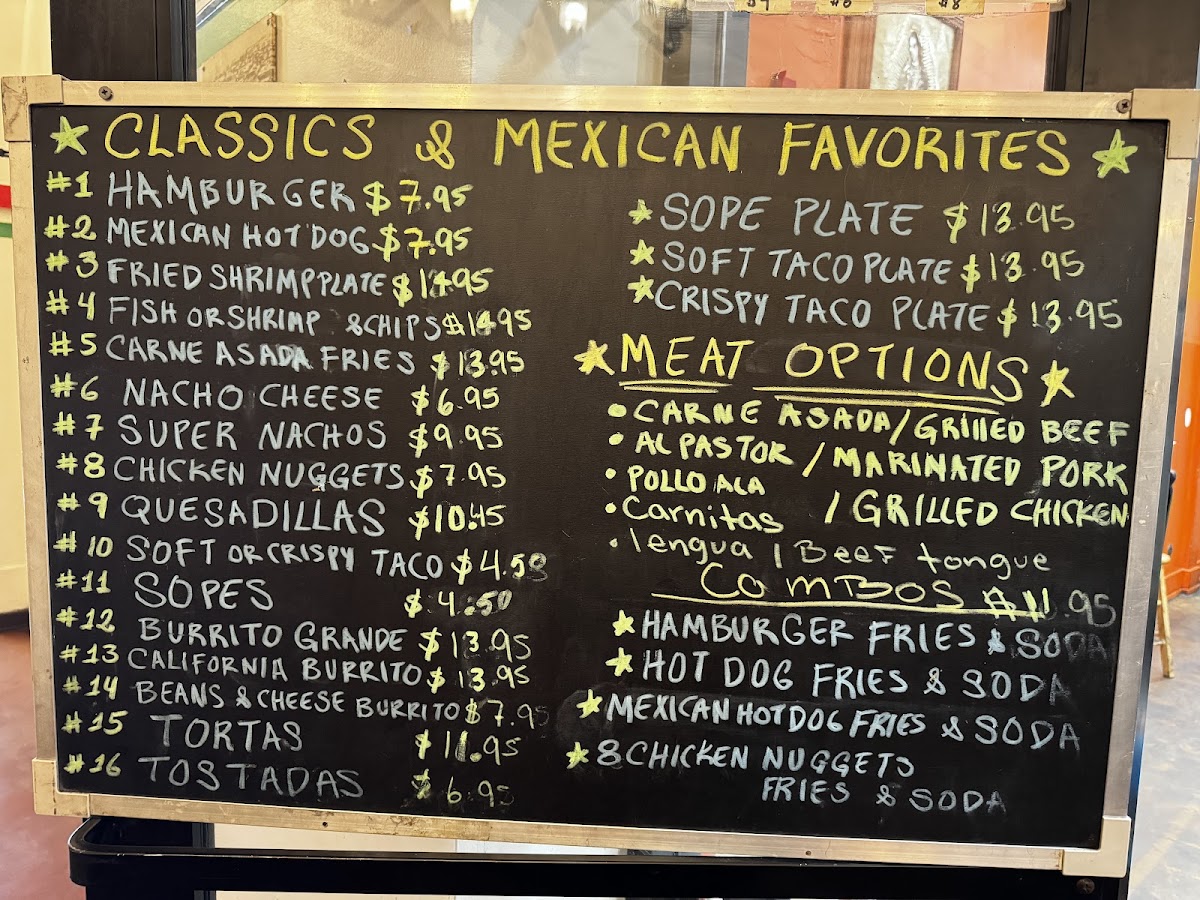 #7 #6 #8
★ CLASSICS & MEXICAN FAVORITES ★
#1 HAMBURGER $7.95
#2 MEXICAN HOT DOG $7.95
#3 FRIED SHRIMP PLATE $14.95
#4 FISH OR SHRIMP & CHIPS $14.95
#5 CARNE ASADA FRIES $13.95
#6 NACHO CHEESE $6.95
#7 SUPER NACHOS $9.95
#8 CHICKEN NUGGETS $7.95
#9 QUESADILLAS $10.45
#10 SOFT OR CRISPY TACO $4.50
#11 SOPES $4.50
#12 BURRITO GRANDE $13.95
#13 CALIFORNIA BURRITO $13.95
#14 BEANS & CHEESE BURRITO $7.95
#15 TORTAS $11.95
#16 TOSTADAS $6.95
★ SOPE PLATE $13.95
★ SOFT TACO PLATE $13.95
★ CRISPY TACO PLATE $13.95
★ MEAT OPTIONS ★
• CARNE ASADA/GRILLED BEEF
• AL PASTOR / MARINATED PORK
• POLLO ALA / GRILLED CHICKEN
• Carnitas
• lengua / Beef tongue
COMBOS $11.95
★ HAMBURGER FRIES & SODA
★ HOT DOG FRIES & SODA
★ MEXICAN HOT DOG FRIES & SODA
★ 8 CHICKEN NUGGETS
FRIES & SODA